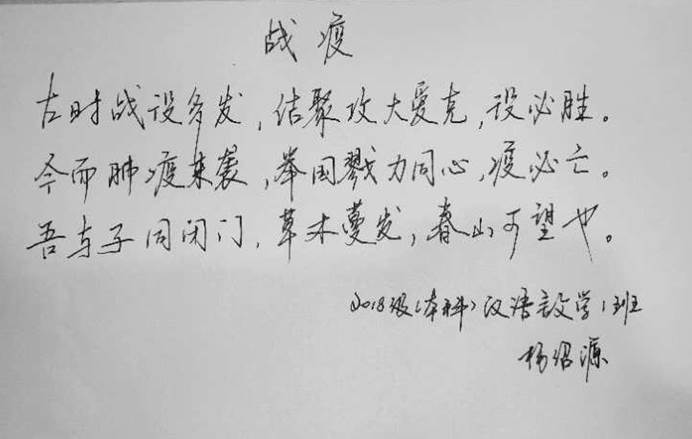 战疫
古时战设多发,结聚攻大爱克,设必胜。
今而肺疫来袭,举国戮力同心,疫必亡。
吾与子同闭门,草木蔓发,春山可望也。
2018级(本科)汉语言文学1班
杨绍源